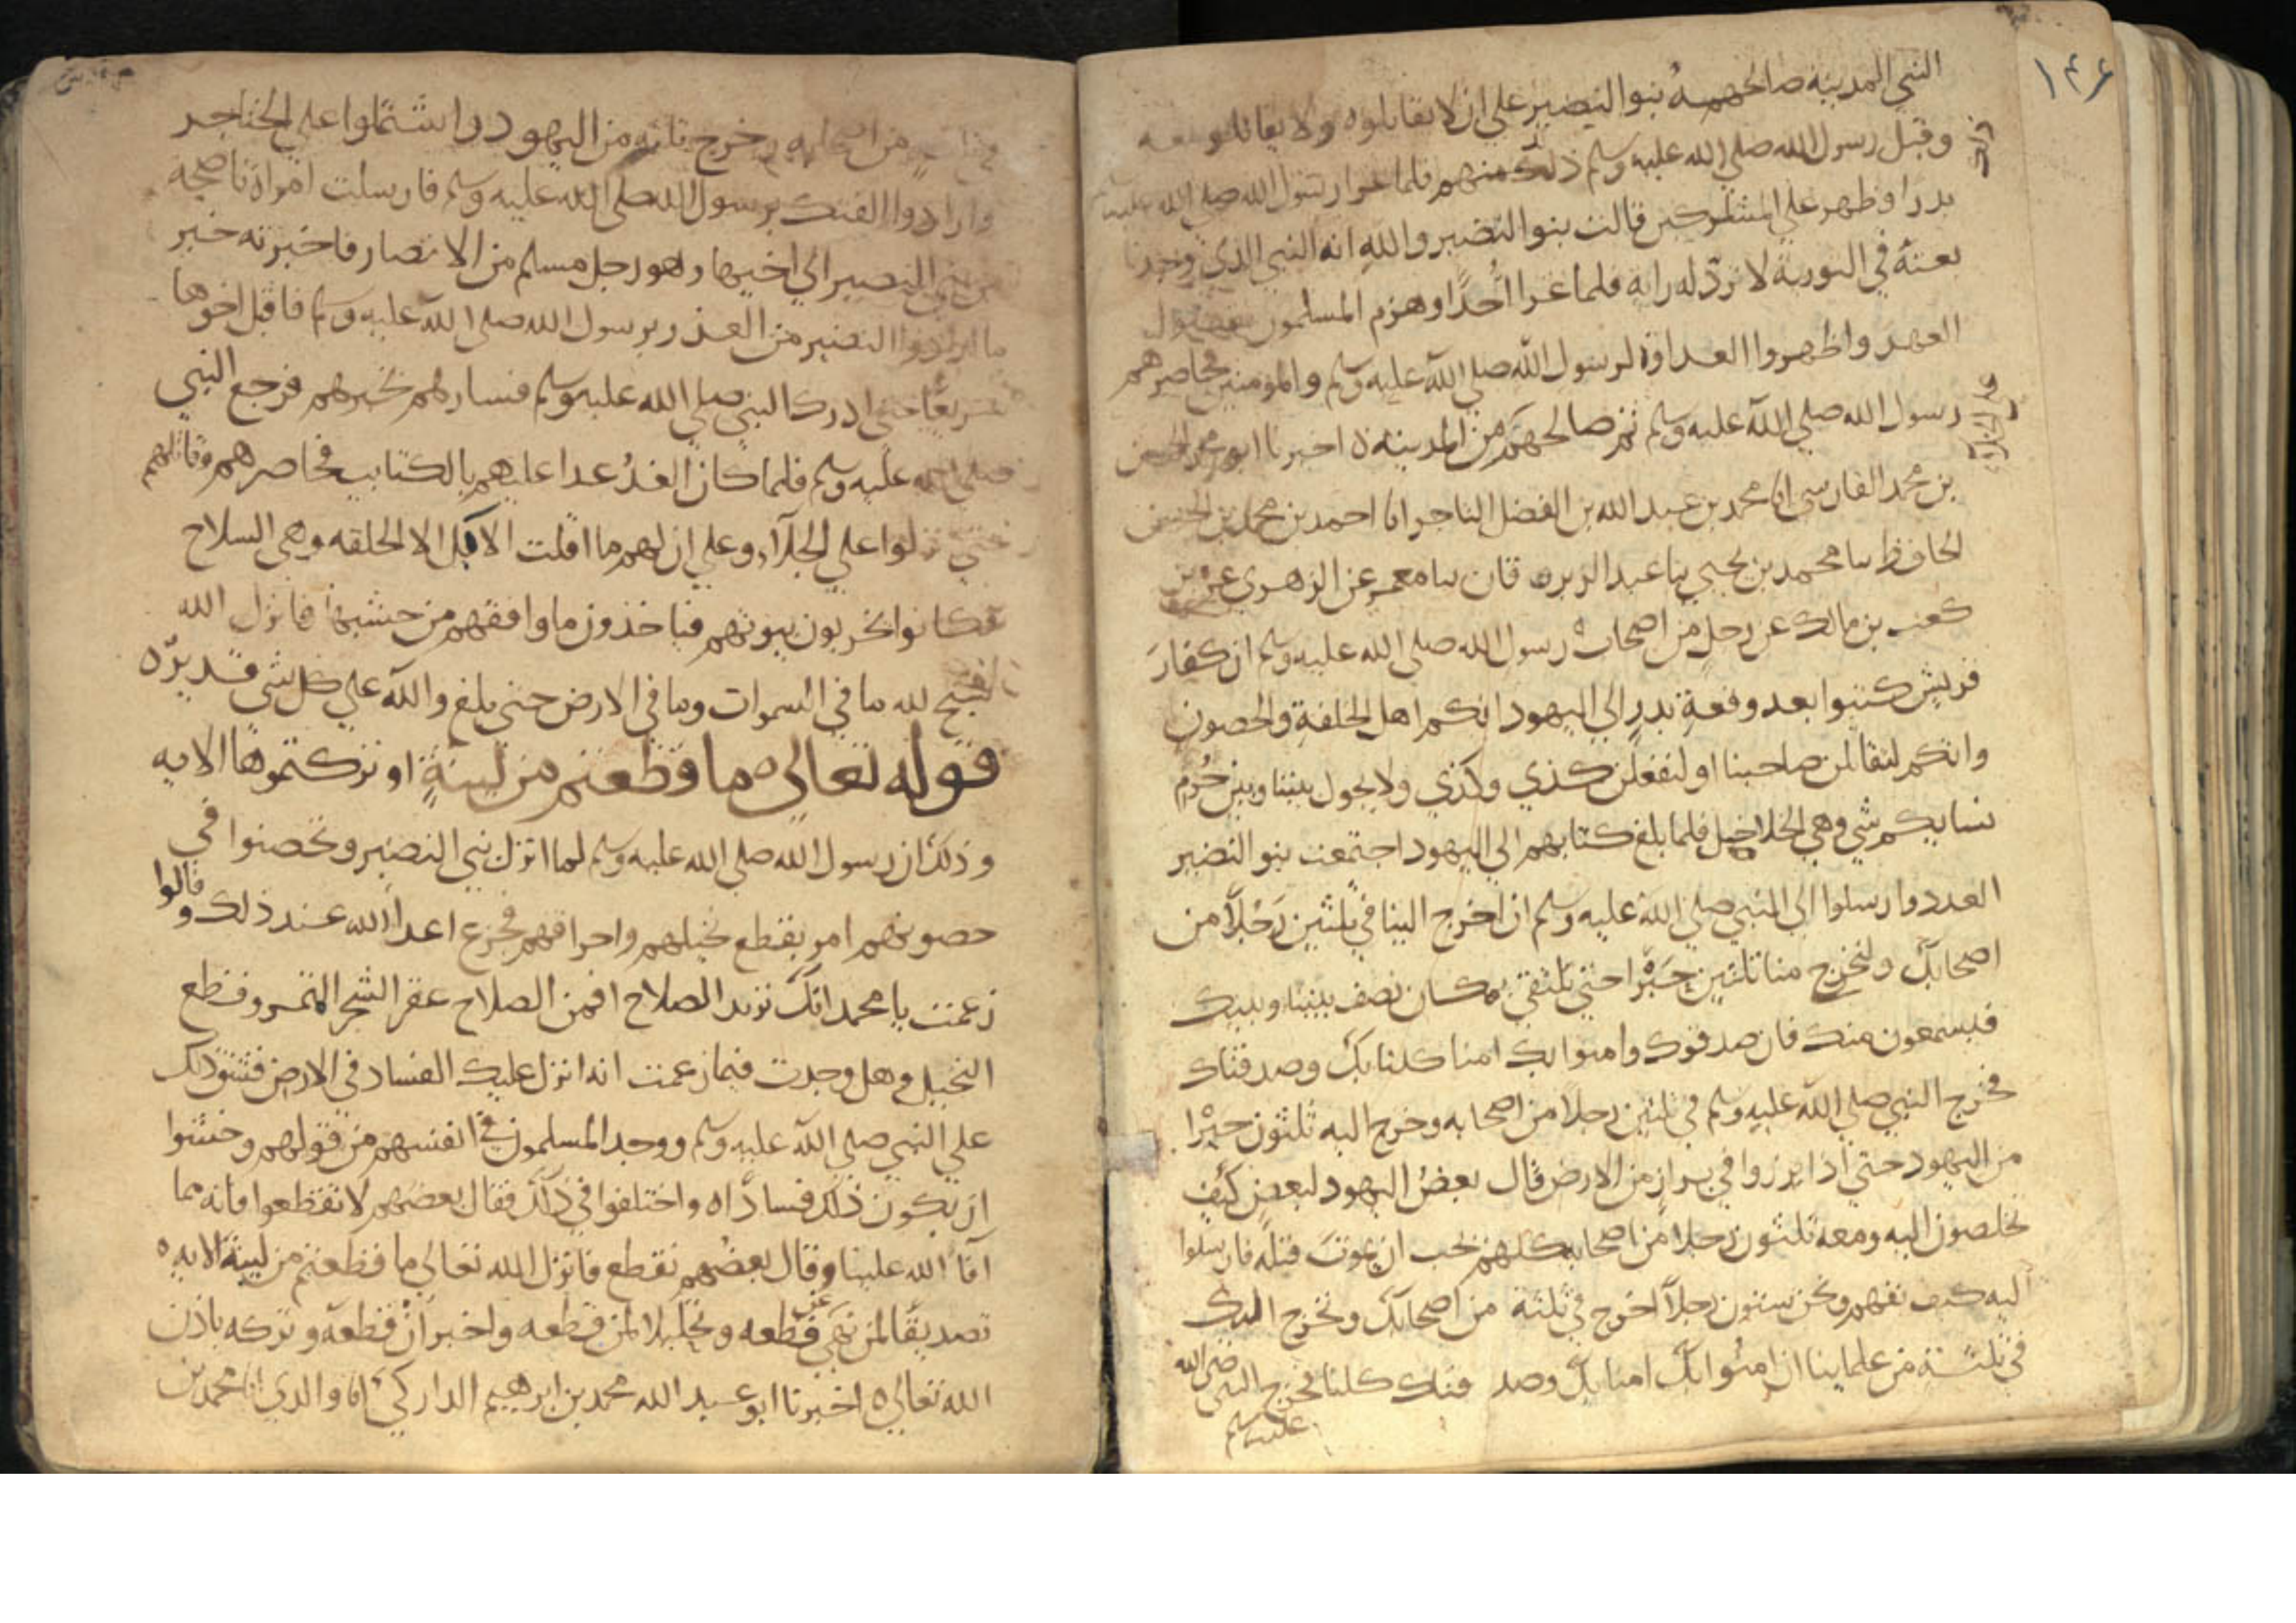 ١٤٦
النبي المدينة صالحهمه بنو النضير علي ان لا يقاتلوه ولا يقاتلوا معه
وقبل رسول الله صلي الله عليه وسلم ذلك منهم فلما غزا رسول الله صلي الله عليه وسلم
بدرا وظهر علي المشركين قالت بنو النضير والله انه النبي الذي وجدنا
نعته في التورية لا ترد له راية فلما غزا احدا وهزم المسلمون نقضوا
العهد واظهروا العداوة لرسول الله صلي الله عليه وسلم والمومنين فحاصرهم
رسول الله صلي الله عليه وسلم ثم صالحهم من المدينة ه اخبرنا ابو محمد الحسن
بن محمد الفارسي انا محمد بن عبد الله بن الفضل التاجر انا احمد بن محمد بن الحسن
الحافظ سا محمد بن يحيي سا عبد الرزاق سا معمر عن الزهري عن بن
كعب بن مالك عن رجل من اصحاب رسول الله صلي الله عليه وسلم ان كفار
قريش كتبوا بعد وقعة بدر الي اليهود انكم اهل الحلقة والحصون
وانكم لتقاتلن صاحبنا او لنفعلن كذي وكذي ولا يحول بيننا وبين خدم
نسايكم شي وهي الخلاخيل فلما بلغ كتابهم الي اليهود اجتمعت بنو النضير
الغدر وارسلوا الي النبي صلي الله عليه وسلم ان اخرج الينا في ثلثين رجلا من
اصحابك وليخرج منا ثلثين حبرا حتي نلتقي بمكان نصف بيننا وبينك
فيسمعون منك فان صدقوك وامنوا بك امنا كلنا بك وصدقناك
فخرج النبي صلي الله عليه وسلم في ثلثين رجلا من اصحابه وخرج اليه ثلثون حبرا
من اليهود حتي اذا برزوا في براز من الارض قال بعض اليهود لبعض كيف
تخلصون اليه ومعه ثلثون رجلا من اصحابه كلهم يحب ان يموت قبله فارسلوا
اليه كيف نفهم ونحن ستون رجلا اخرج في ثلثة من اصحابك ونخرج اليك
في ثلثة من علماينا ان امنوا بك امنا بك وصدقناك كلنا فخرج النبي صلي الله
عليه وسلم
في ثلثة من اصحابه وخرج ثلثه من اليهود واشتملوا علي الخناجر
وارادوا الفتك برسول الله صلي الله عليه وسلم فارسلت امراة ناصحه
من بني النضير الي اخيها وهو رجل مسلم من الانصار فاخبرته خبر
ما اراد بنو النضير من الغدر برسول الله صلي الله عليه وسلم فاقبل اخوها
سريعا حتي ادرك النبي صلي الله عليه وسلم فساره بخبرهم فرجع النبي
صلي الله عليه وسلم فلما كان الغد غدا عليهم بالكتايب فحاصرهم وقاتلهم
حتي نزلوا علي الجلآء وعلي ان لهم ما اقلت الابل الا الحلقه وهي السلاح
فكانوا يخربون بيوتهم فياخذون ما وافقهم من خشبها فانزل الله
سبح لله ما في السموات وما في الارض حتي بلغ والله علي كل شي قدير ه
قوله تعالي ه ما قطعتم من لينة او تركتموها الايه
وذلك ان رسول الله صلي الله عليه وسلم لما انزل بني النضير وتحصنوا في
حصونهم امر بقطع نخيلهم واحراقهم فجزع اعدا الله عند ذلك وقالوا
زعمت يا محمد انك تريد الصلاح افمن الصلاح عقر الشجر المثمر وقطع
النخيل وهل وجدت فيما زعمت انه انزل عليك الفساد في الارض فشق ذلك
علي النبي صلي الله عليه وسلم ووجد المسلمون في انفسهم من قولهم وخشوا
ان يكون ذلك فسادا ه واختلفوا في ذلك فقال بعضهم لا تقطعوا فانه مما
آفا الله علينا وقال بعضهم نقطع فانزل الله تعالي ما قطعتم من لينة الايه ه
تصديقا لمن نهي عن قطعه وتحليلا لمن قطعه واخبر ان قطعه وتركه باذن
الله تعالي ه اخبرنا ابو عبد الله محمد بن ابرهيم الداركي انا والدي انا محمد بن